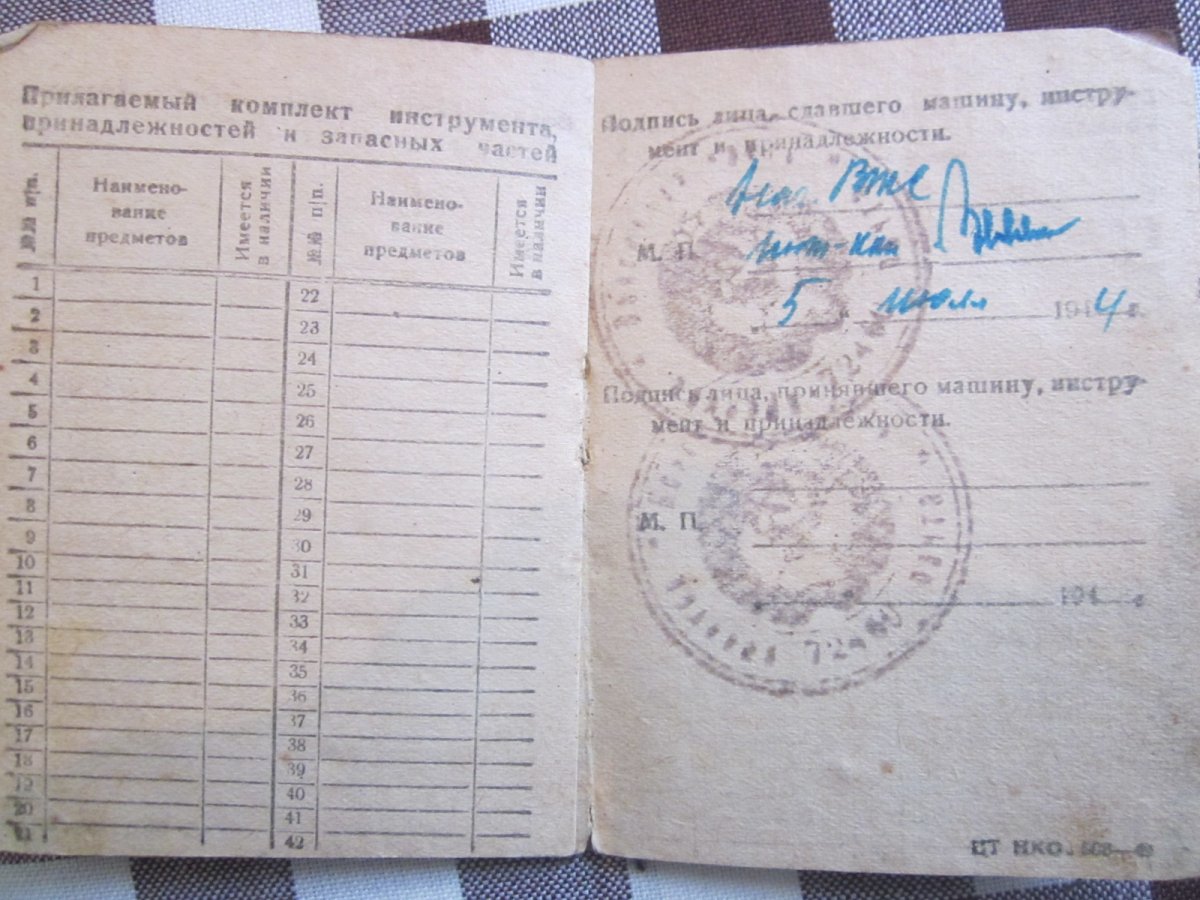 Прилагаемый комплект инструмента,
принадлежностей и запасных частей
№№ п/п.
Наимено-
вание
предметов
Имеется
в наличии
№№ п/п.
Наимено-
вание
предметов
Имеется
в наличии
1
2
3
4
5
6
7
8
9
10
11
12
13
14
15
16
17
18
19
20
21
22
23
24
25
26
27
28
29
30
31
32
33
34
35
36
37
38
39
40
41
42
Подпись лица, сдавшего машину, инстру-
мент и принадлежности.
М. П.
5 июля 1944 г.
Подпись лица, принявшего машину, инстру-
мент и принадлежности.
М. П.
194 г.
ЦТ НКО.